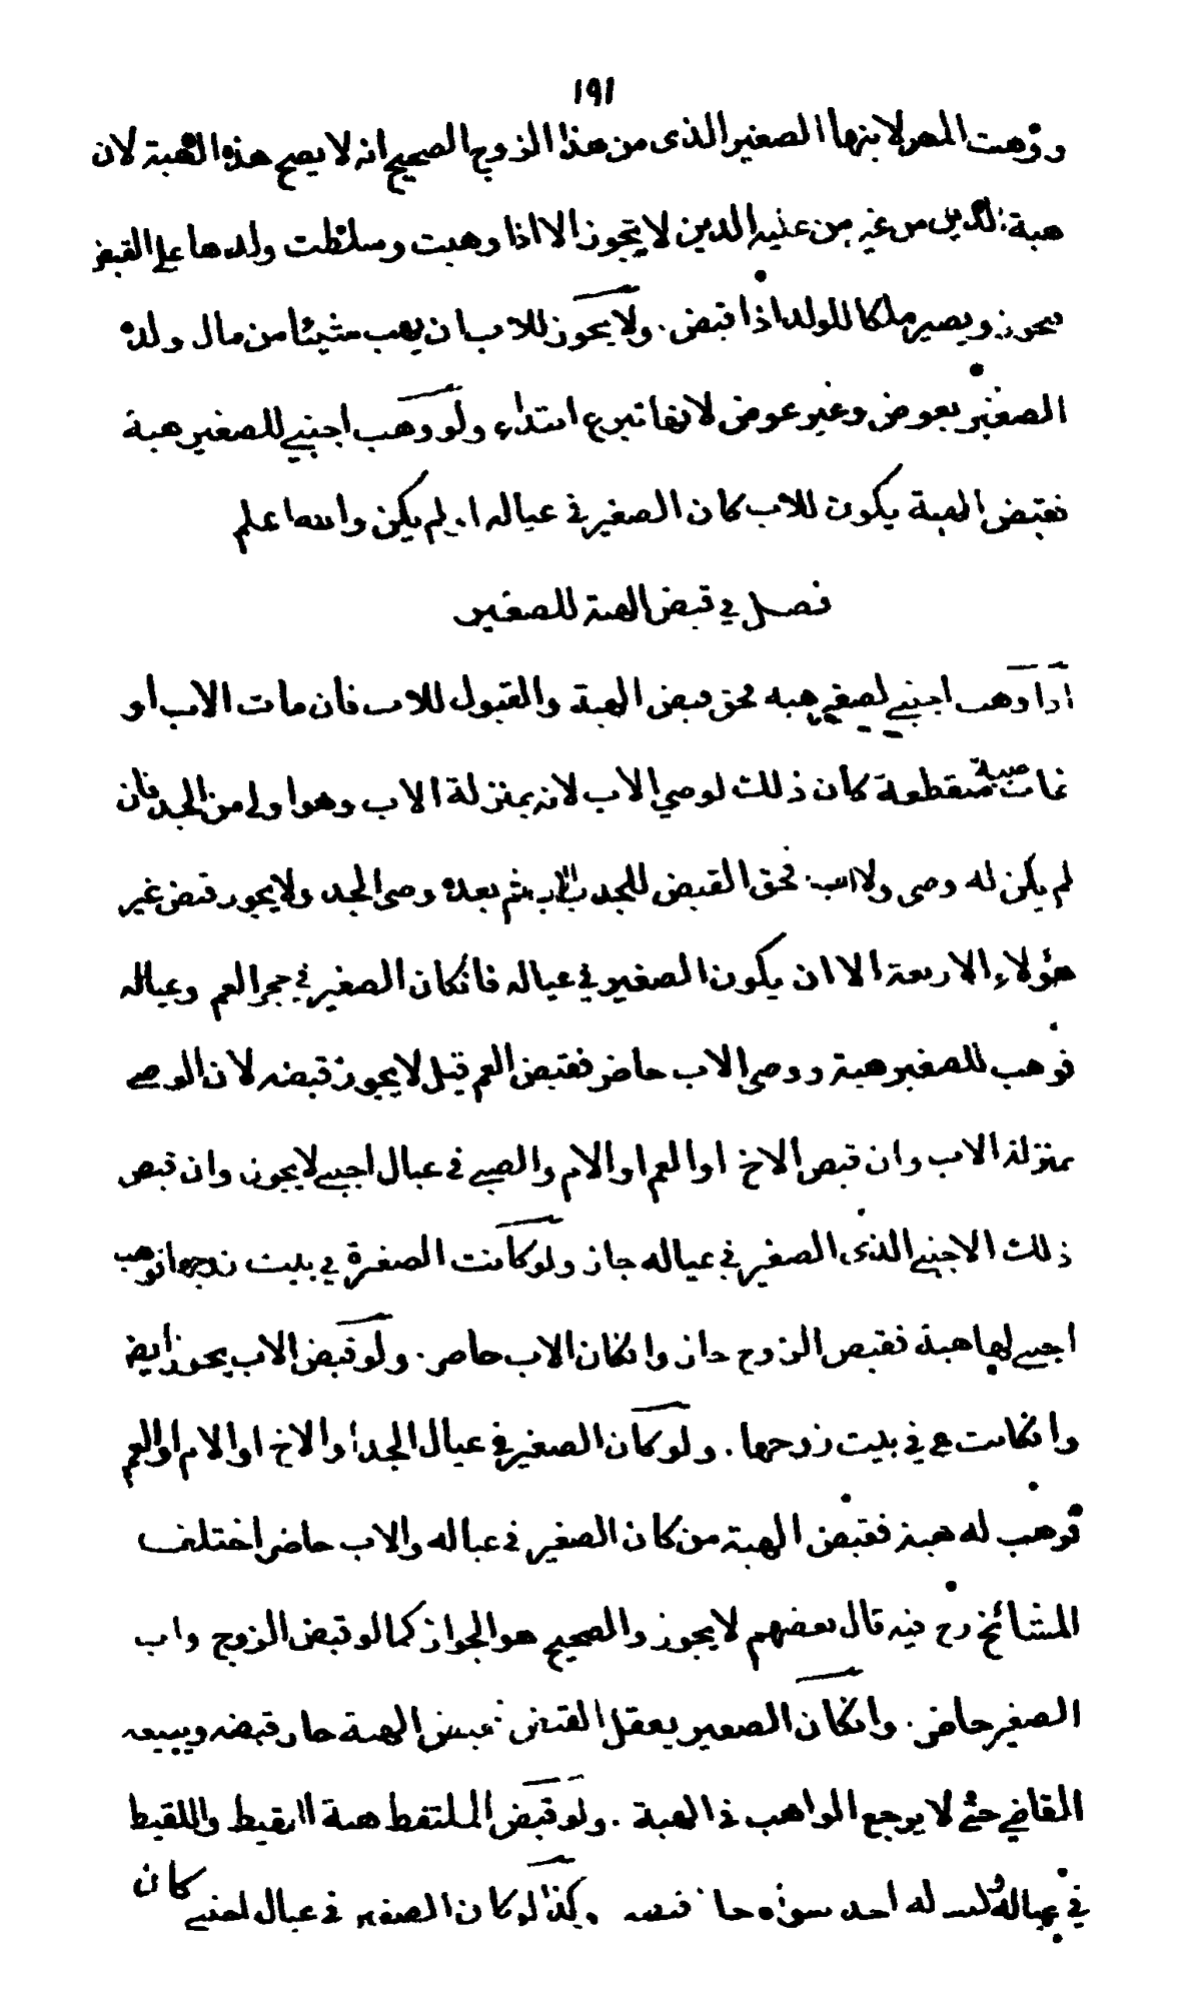 ١٩١
ووهبت المهر لابنها الصغير الذى من هذا الزوج الصحيح انه لا يصح هذه الهبة لان
هبة الدين من غير من عليه الدين لا يجوز الا اذا وهبت وسلطت ولدها على القبض
يجوز ويصير ملكا للولد اذا قبض . ولا يجوز للاب ان يهب شيئا من مال ولده
الصغير بعوض وغير عوض لانها تبرع ابتداء ولو وهب اجنبى للصغير هبة
فقبض الهبة يكون للاب كان الصغير فى عياله او لم يكن والله اعلم
فصل فى قبض الهبة للصغير
اذا وهب اجنبى لصغير هبه فحق قبض الهبة والقبول للاب فان مات الاب او
غاب غيبة منقطعة كان ذلك لوصي الاب لانه بمنزلة الاب وهو اولى من الجد فان
لم يكن له وصى ولا اب . فحق القبض للجد اب الاب ثم بعده وصى الجد ولا يجوز قبض غير
هؤلاء الاربعة الا ان يكون الصغير فى عياله فانكان الصغير فى حجر العم وعياله
فوهب للصغير هبة ووصى الاب حاضر فقبض العم قيل لا يجوز قبضه لان الوصى
بمنزلة الاب وان قبض الاخ او العم او الام والصبى فى عيال اجنبى لا يجوز وان قبض
ذلك الاجنبى الذى الصغير فى عياله جاز ولو كانت الصغيرة فى بيت زوجها فوهب
اجنبى لها هبة فقبض الزوج جاز وانكان الاب حاضر . ولو قبض الاب يجوز ايضا
وانكانت هى فى بيت زوجها . ولو كان الصغير فى عيال الجد او الاخ او الام او العم
فوهب له هبة فقبض الهبة من كان الصغير فى عياله والاب حاضر اختلف
المشائخ رح فيه قال بعضهم لا يجوز والصحيح هو الجواز كما لو قبض الزوج واب
الصغير حاضر . وانكان الصغير يعقل القبض فقبض الهبة جاز قبضه ويبيعه
القاضى حتى لا يرجع الواهب فى الهبة . ولو قبض الملتقط هبة اللقيط واللقيط
فى عياله وليس له احد سواه جاز قبضه وكذا لو كان الصغير فى عيال اجنبى كان